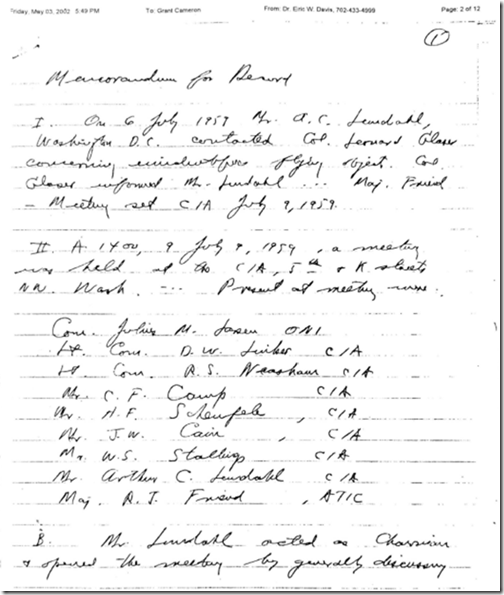 Friday, May 03, 2002 5:49 PM To: Grant Cameron From: Dr. Eric W. Davis, 702-433-4999 Page: 2 of 12
1
Memorandum for Record
I. On 6 July 1959 Mr. A.C. Lundahl,
Washington D.C. contacted Col. Leonard Glaser
concerning unidentified flying object. Col
Glaser informed Mr. Lundahl ... Maj. Friend
- Meeting set CIA July 9, 1959.
II. A 1400, 9 July 9, 1959, a meeting
was held at the CIA, 5th & K streets
NW. Wash. -.. Present at meeting were.
Com. Julius M. Larsen ONI
Lt. Com. D.W. Linker CIA
Lt Com. R.S. Neasham CIA
Mr. C.F. Camp CIA
Mr. H.F. Scheufele, CIA
Mr. J.W. Cain, CIA
Mr. W.S. Stallings CIA
Mr. Arthur C. Lundahl CIA
Maj. R.J. Friend, ATIC
B. Mr. Lundahl acted as Chairman
& opened the meeting by generally discussing